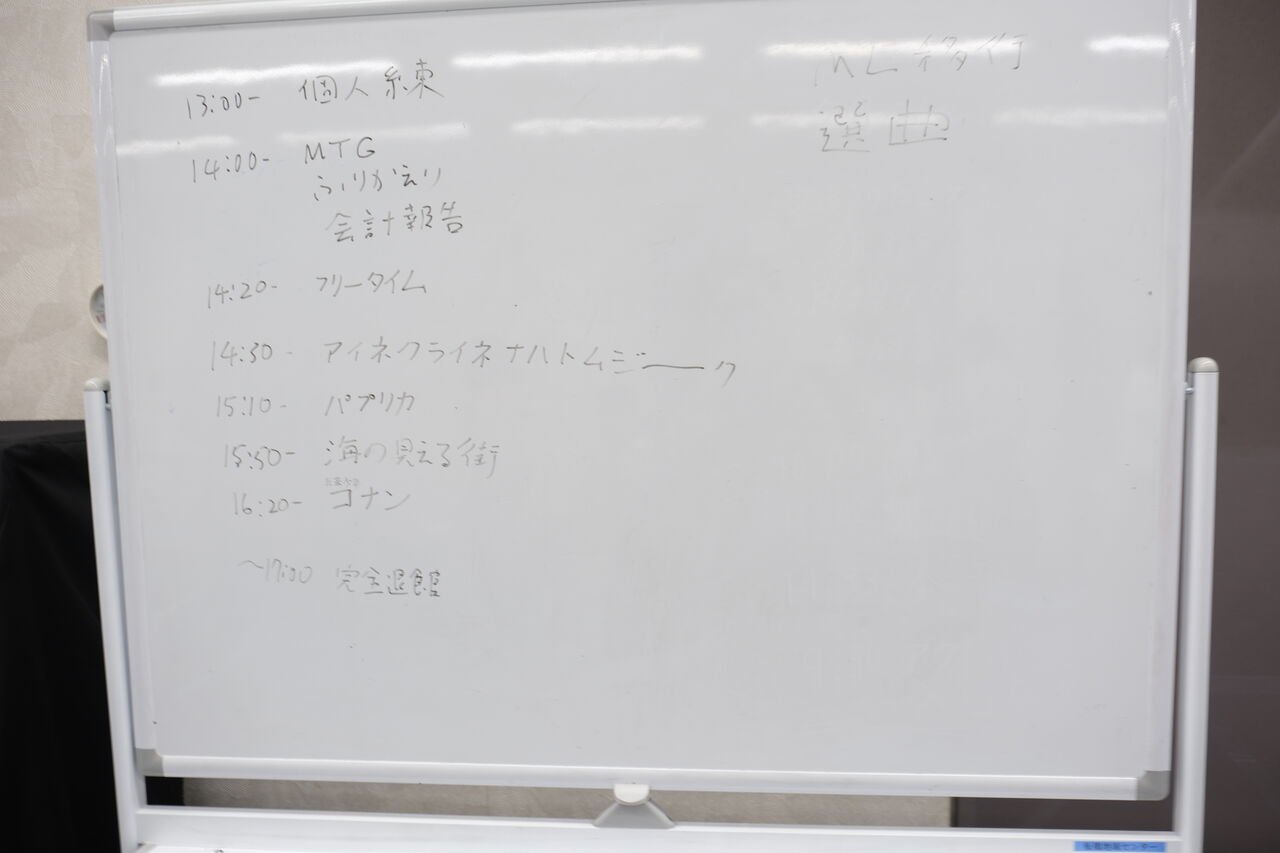 13:00- 個人練
14:00- MTG
ふりかえり
会計報告
14:20- フリータイム
14:30- アイネクライネナハトムジーク
15:10- パプリカ
15:50- 海の見える街
16:20- コナン
~17:00 完全退館
ML移行
選曲